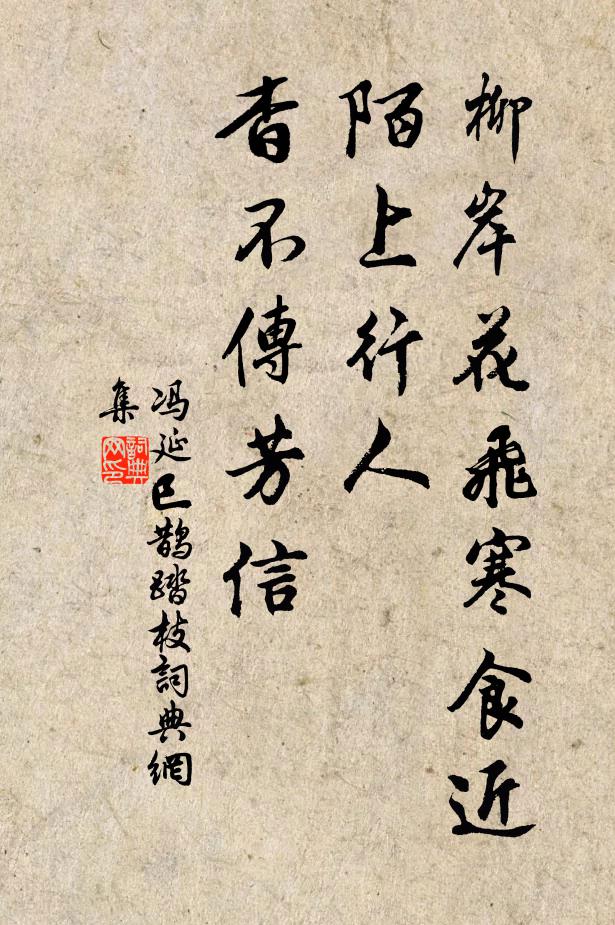 柳岸花飛寒食近
陌上行人
杳不傳芳信
冯延巳鹊踏枝詞典網
集
詞典
网印